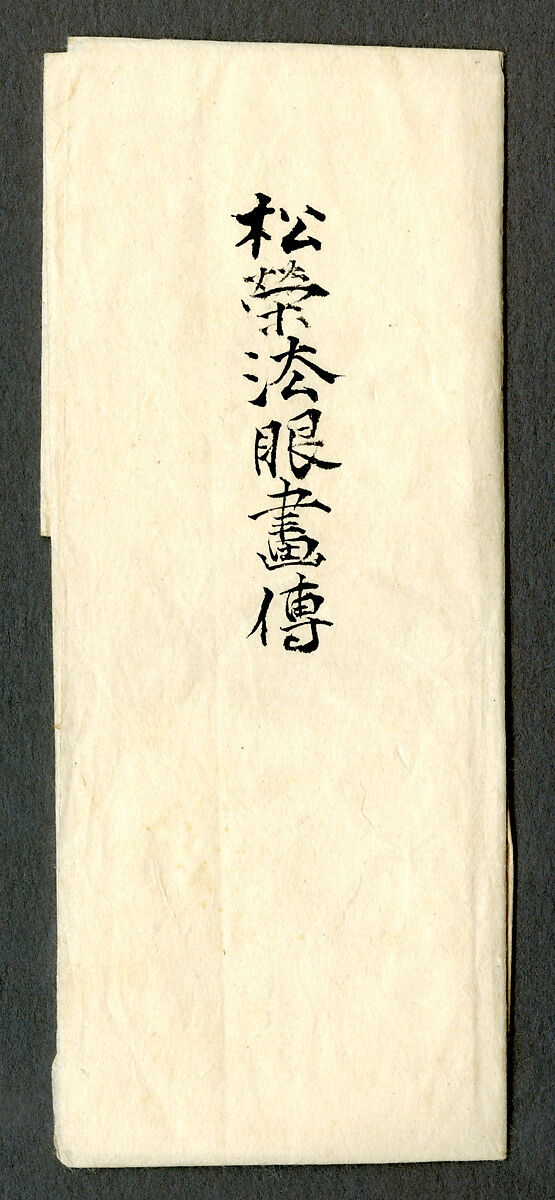 松榮法眼畫傳